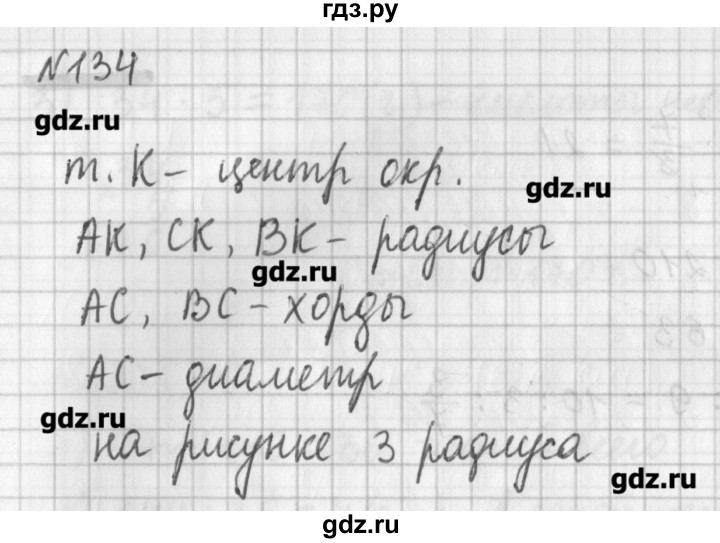 гдз.ру
№134
gdz.ru
т. К – центр окр.
gdz.ru
АК, СК, ВК – радиусы
gdz.ru
АС, ВС – хорды
АС – диаметр
gdz.ru
на рисунке 3 радиуса
gdz.ru
gdz.ru